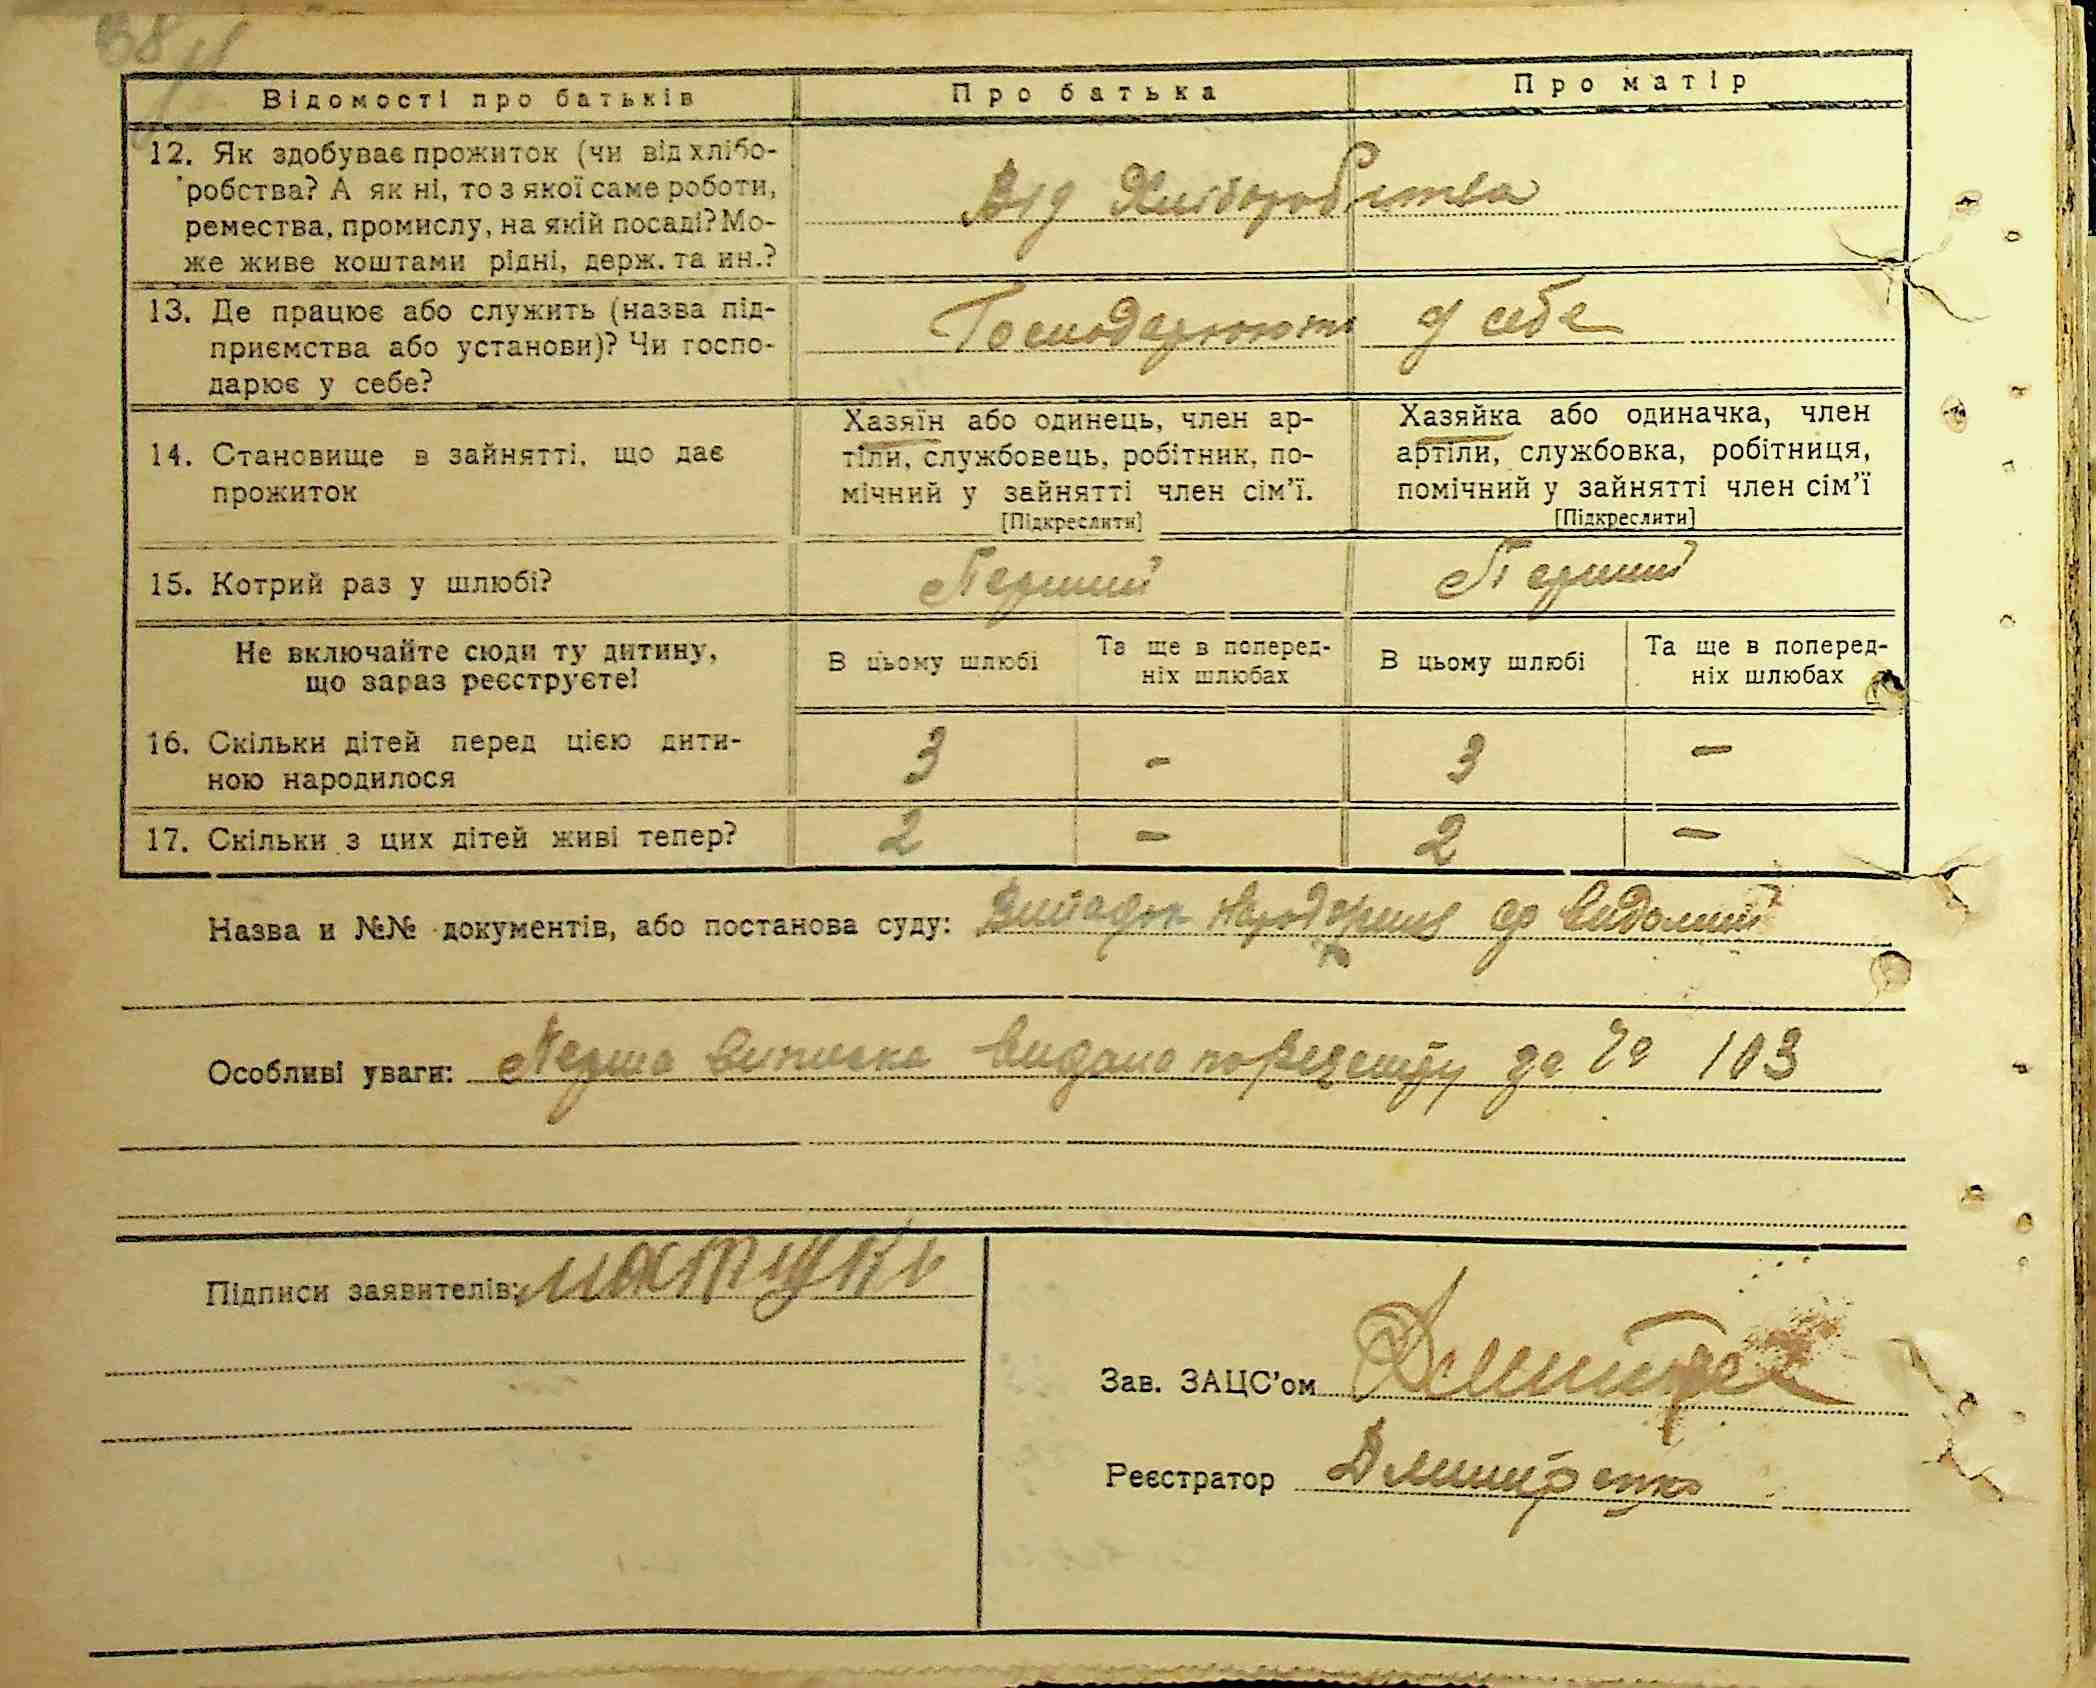 38
Відомості про батьків
Про батька
Про матір
12. Як здобуває прожиток (чи від хлібо-
робства? А як ні, то з якої саме роботи,
ремества, промислу, на якій посаді? Мо-
же живе коштами рідні, держ. та ин.?
Від Хліборобства
13. Де працює або служить (назва під-
приємства або установи)? Чи госпо-
дарює у себе?
Господарюють у себе
14. Становище в зайнятті, що дає
прожиток
Хазяїн або одинець, член ар-
тіли, службовець, робітник, по-
мічний у зайнятті член сім'ї.
[Підкреслити]
Хазяйка або одиначка, член
артіли, службовка, робітниця,
помічний у зайнятті член сім'ї
[Підкреслити]
15. Котрий раз у шлюбі?
Перший
Перший
Не включайте сюди ту дитину,
що зараз реєструєте!
В цьому шлюбі
Та ще в поперед-
ніх шлюбах
В цьому шлюбі
Та ще в поперед-
ніх шлюбах
16. Скільки дітей перед цією дити-
ною народилося
3
-
3
-
17. Скільки з цих дітей живі тепер?
2
-
2
-
Назва и №№ документів, або постанова суду: Випадок
Особливі уваги: Перша виписка видана по Реєстру за № 103
Підписи заявителів:
Зав. ЗАЦС'ом
Реєстратор Дмитренко